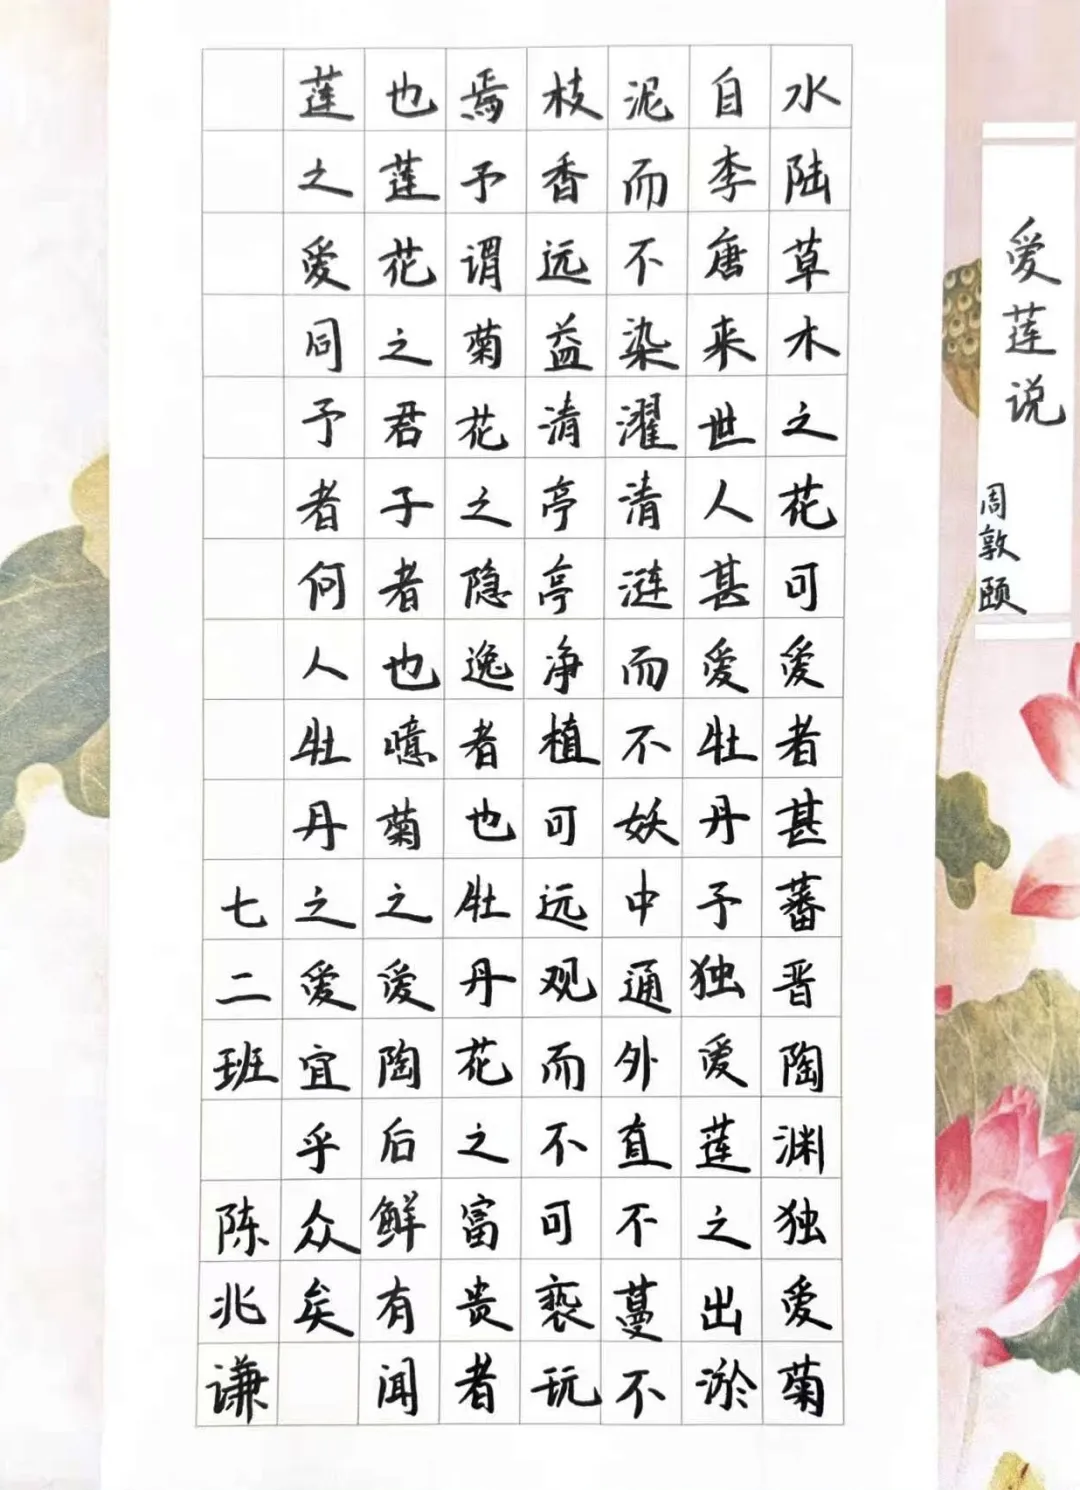 爱莲说
周敦颐
水陆草木之花可爱者甚蕃晋陶渊独爱菊
自李唐来世人甚爱牡丹予独爱莲之出淤
泥而不染濯清涟而不妖中通外直不蔓不
枝香远益清亭亭净植可远观而不可亵玩
焉予谓菊花之隐逸者也牡丹花之富贵者
也莲花之君子者也噫菊之爱陶后鲜有闻
莲之爱同予者何人牡丹之爱宜乎众矣
七二班 陈兆谦